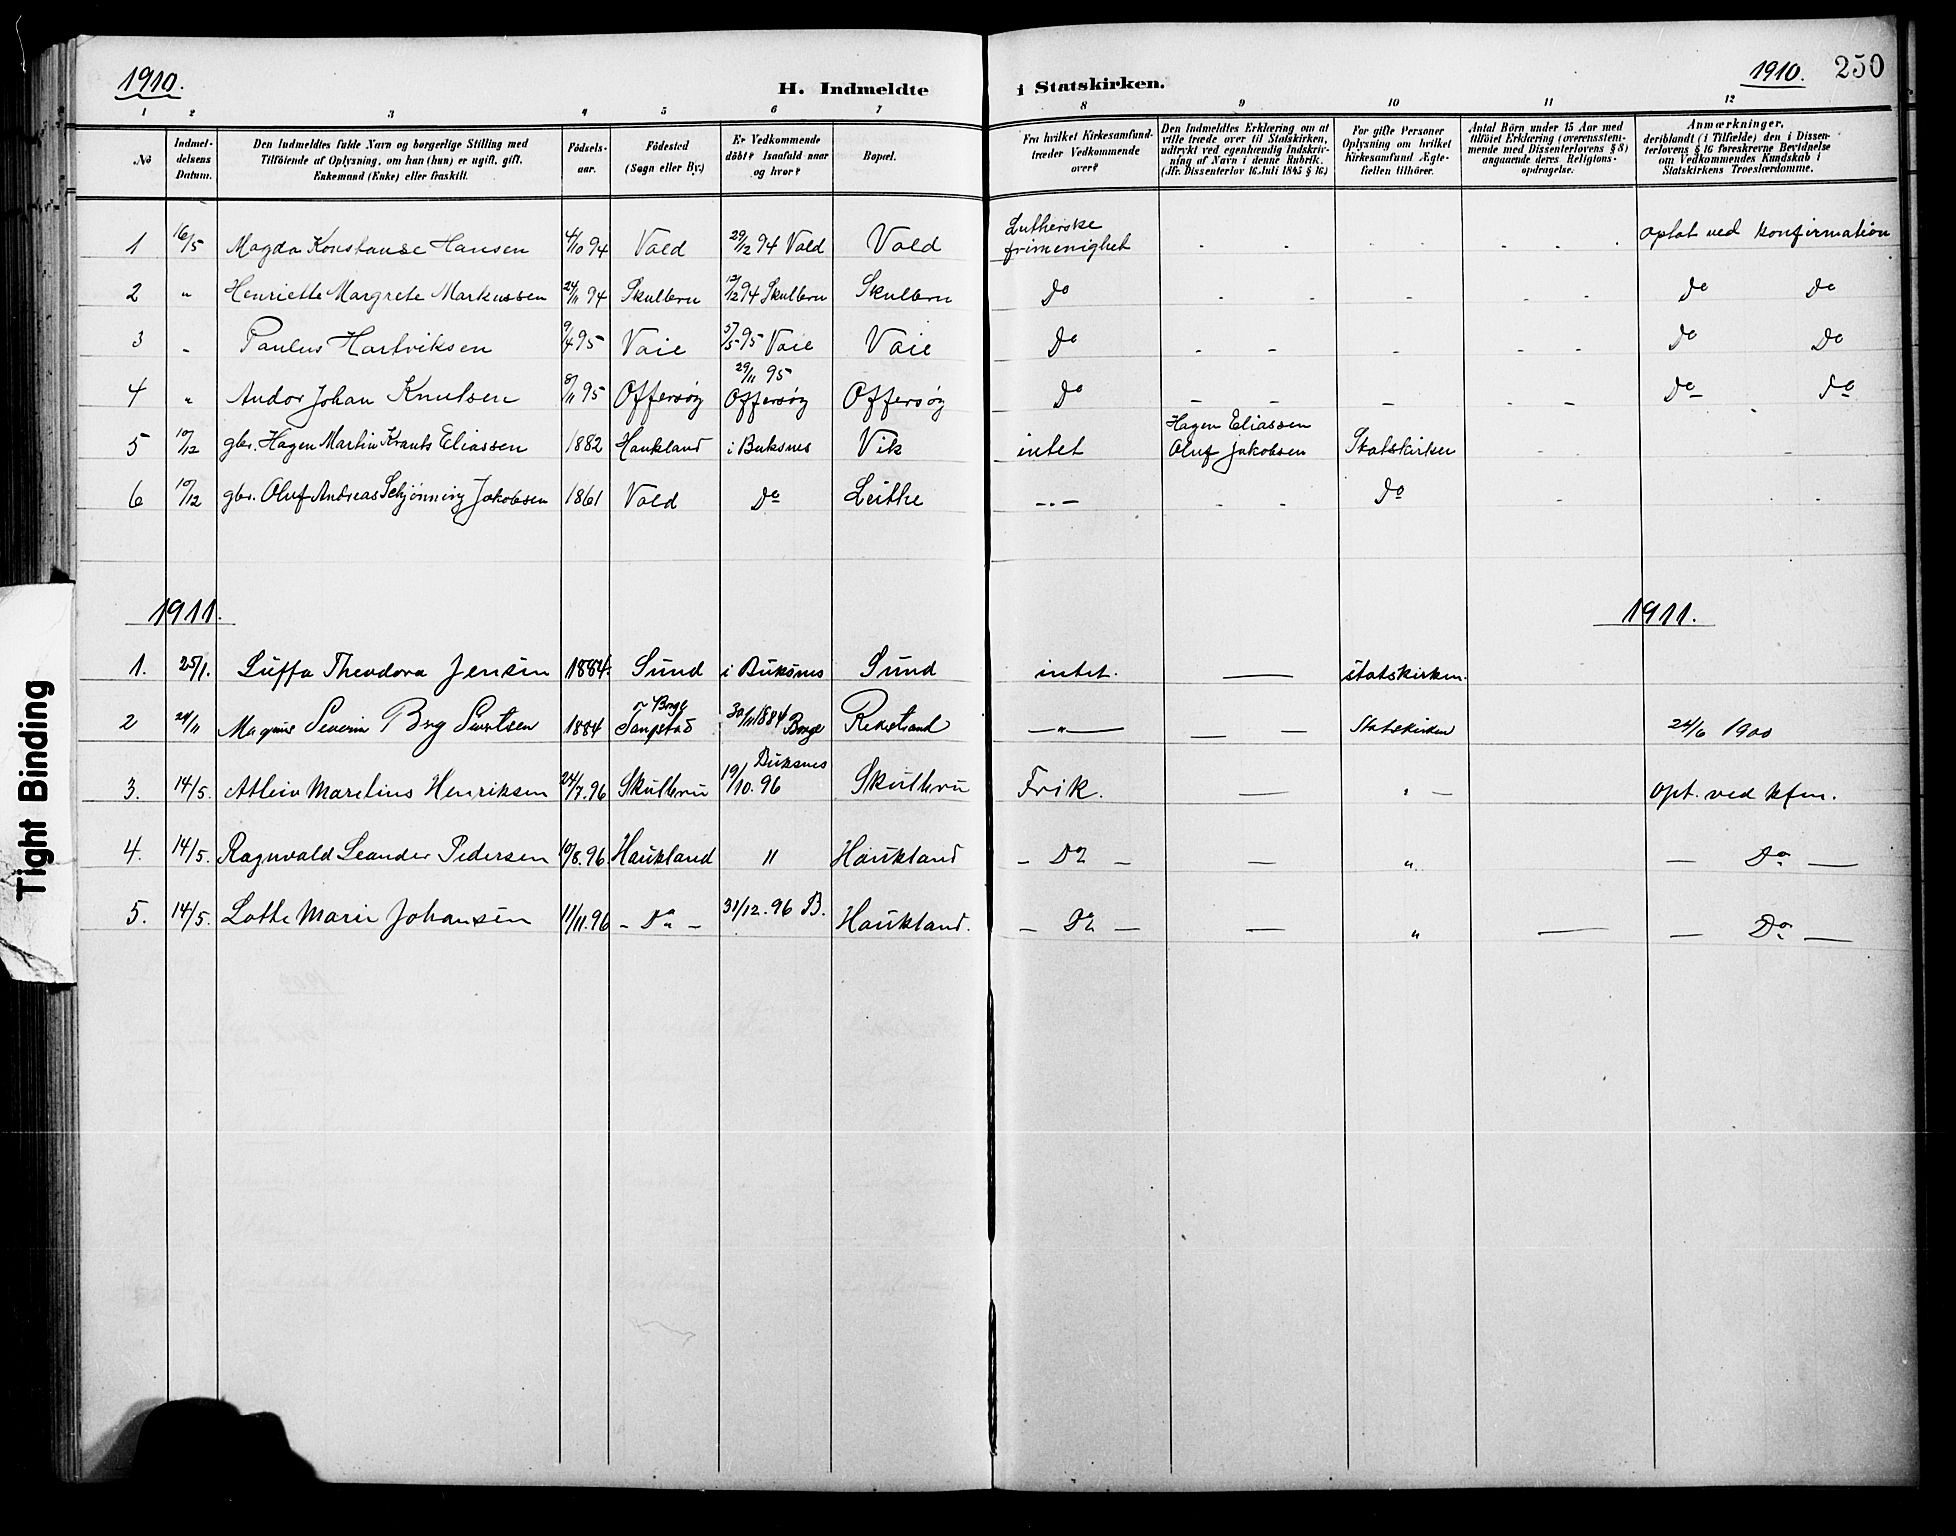 1910.
H. Indmeldte
i Statskirken.
1910. 250
1 2 3 4 5 6 7 8 9 10 11 12
No
Indmel-
delsens
Datum.
Den Indmeldtes fulde Navn og borgerlige Stilling med
Tilföiende af Oplysning, om han (hun) er ugift, gift,
Enkemand (Enke) eller fraskilt.
Födsels-
aar.
Födested
(Sogn eller By.)
Er Vedkommende
döbt? Isaafald naar
og hvor?
Bopæl.
Fra hvilket Kirkesamfund-
træder Vedkommende
over?
Den Indmeldtes Erklæring om at
ville træde over til Statskirken,
udtrykt ved egenhændig Indskriv-
ning af Navn i denne Rubrik.
(Jfr. Dissenterlov 16 Juli 1845 § 16)
For gifte Personer
Oplysning om hvilket
Kirkesamfund Ægte-
fællen tilhörer.
Antal Börn under 15 Aar med
tilföiet Erklæring (overensstem-
mende med Dissenterlovens § 8)
angaaende deres Religions-
opdragelse.
Anmærkninger,
deriblandt (i Tilfælde) den i Dissen-
terlovens § 16 foreskrevne Bevidnelse
om Vedkommendes Kundskab i
Statskirkens Troeslærdomme.
1 16/5 Magda Konstanse Hansen 4/10 94 Vold 29/12 94 Vold Vold Lutherske frimenighet - - - - - - - optat ved konfirmation
2 " Henriette Margrete Markussen 24/11 94 Skulbru /12 94 Skulbru Skulbru Do - - - - - Do Do
3 - Paulus Hartviksen 9/4 95 Vaie 5/5 95 Vaie Vaie Do - - - - - Do Do
4 " Andor Johan Knutsen 8/11 95 Offersøy 29/11 95 Offersøy Offersøy Do - - - - - Do Do
5 10/12 gbr. Hagen Martin Krants Eliassen 1882 Haukland i Buksnes Vik intet Hagen Eliassen Oluf Jakobsen Statskirken - -
6 10/12 gbr. Oluf Andreas Schjønning Jakobsen 1861 Vold Do Leithe -.- - - Do - - -
1911.
1911.
1. 25/1. Luffa Theodora Jensen 1884. Sund i Buksnes Sund intet. — statskirken.
2 24/11 Magnus Severin Berg Sivertsen 1884 i Borge 30/11 1884 Borge —"— — — Statskirken 24/6 1900
3. 14/5. Marelius Henriksen 24/7.96 Skulbru 19/10.96 Buksnes Skulbru Frik. — " — opt. ved kfm.
4. 14/5. Ragnvald Leander Pedersen 10/8.96 Haukland " Haukland - Do - — " — Do —
5. 14/5. Lotte Marie Johansen 11/11.96 - Do - 31/12.96 B. Haukland. - Do - — " — — Do —
Tight Binding